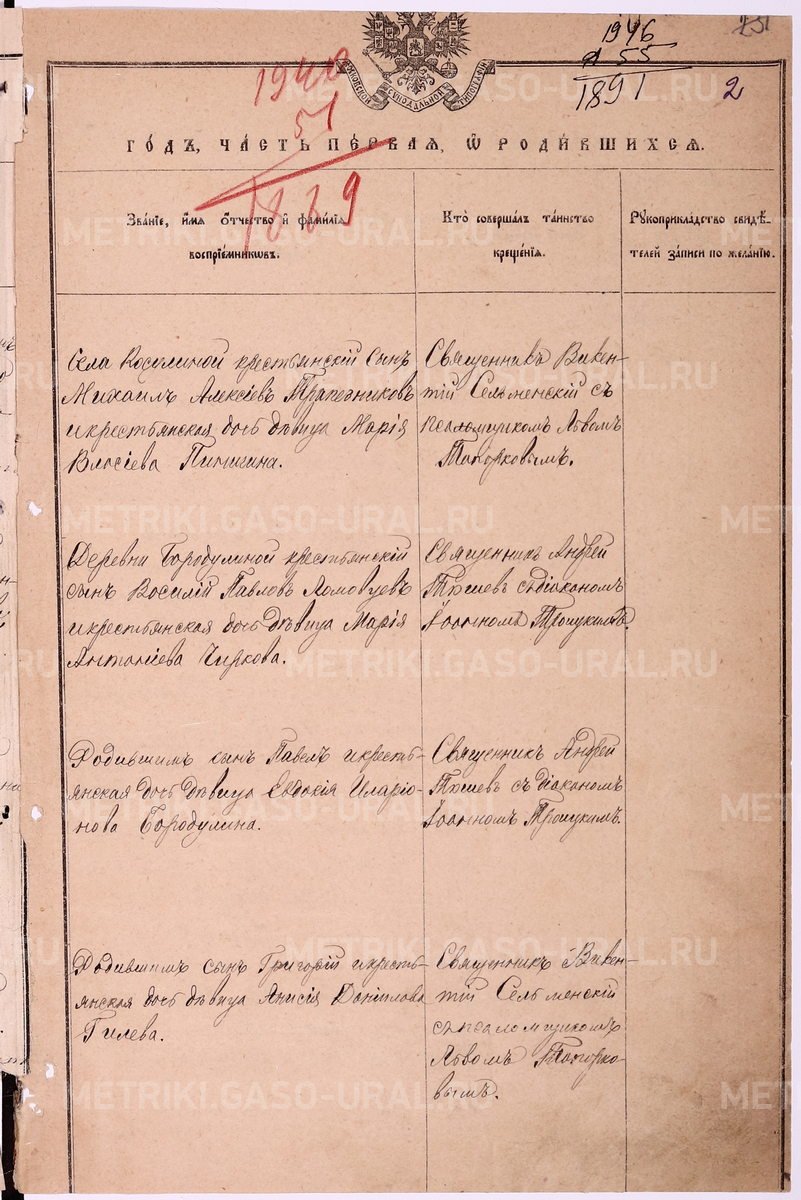 1946
55
1891
2
1940
51
1889
МОСКОВСКОЙ СѴНОДАЛЬНОЙ ТИПОГРАФІИ
ГО́ДЪ, ЧА́СТЬ ПЕ́РВАЯ, Ѿ РОДИ́ВШИХСЯ.
Зва́нїе, и҆́мя ѻ҆́тчество и҆ фами́лїя
воспрїе́мникѡвъ.
Кто̀ соверша́лъ та́инство
креще́нїя.
Рꙋкоприкла́дство свидѣ́-
телей за́писи по жела́нїю.
Села Косулиной крестьянскій сынъ
Михаилъ Алексіевъ Трапезниковъ
и крестьянская дочь дѣвица Марія
Власіева Пинигина.
Священникъ Викен-
тій Сельменскій съ
псаломщикомъ Львомъ
Топорковымъ.
Деревни Бородулиной крестьянскій
сынъ Василій Павловъ Ломовцевъ
и крестьянская дочь дѣвица Марія
Антоніева Чиркова.
Священникъ Андрей
Тюшевъ съ діакономъ
Іоанномъ Троицкимъ.
Родившимъ сынъ Павелъ и кресть-
янская дочь дѣвица Евдокія Иларіо-
нова Бородулина.
Священникъ Андрей
Тюшевъ съ діакономъ
Іоанномъ Троицкимъ.
Родившимъ сынъ Григорій и кресть-
янская дочь дѣвица Анисія Даніилова
Гилева.
Священникъ Викен-
тій Сельменскій
съ псаломщикомъ
Львомъ Топорко-
вымъ.
METRIKI.GASO-URAL.RU